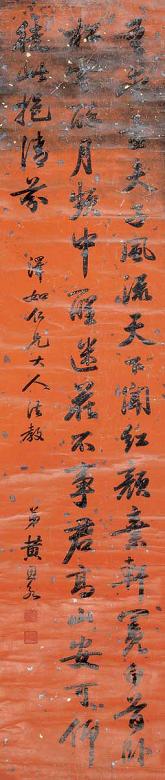 吾愛孟夫子風流天下聞紅顏棄軒冕白首卧
松雲醉月頻中聖迷花不事君高山安可仰
徒此挹清芬
澤如仁兄大人法教
弟黃思永